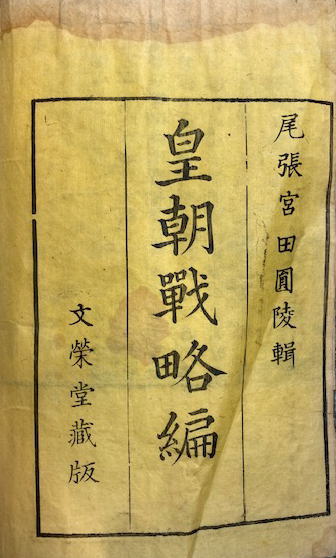 尾張宮田圓陵輯
皇朝戰略編
文榮堂藏版